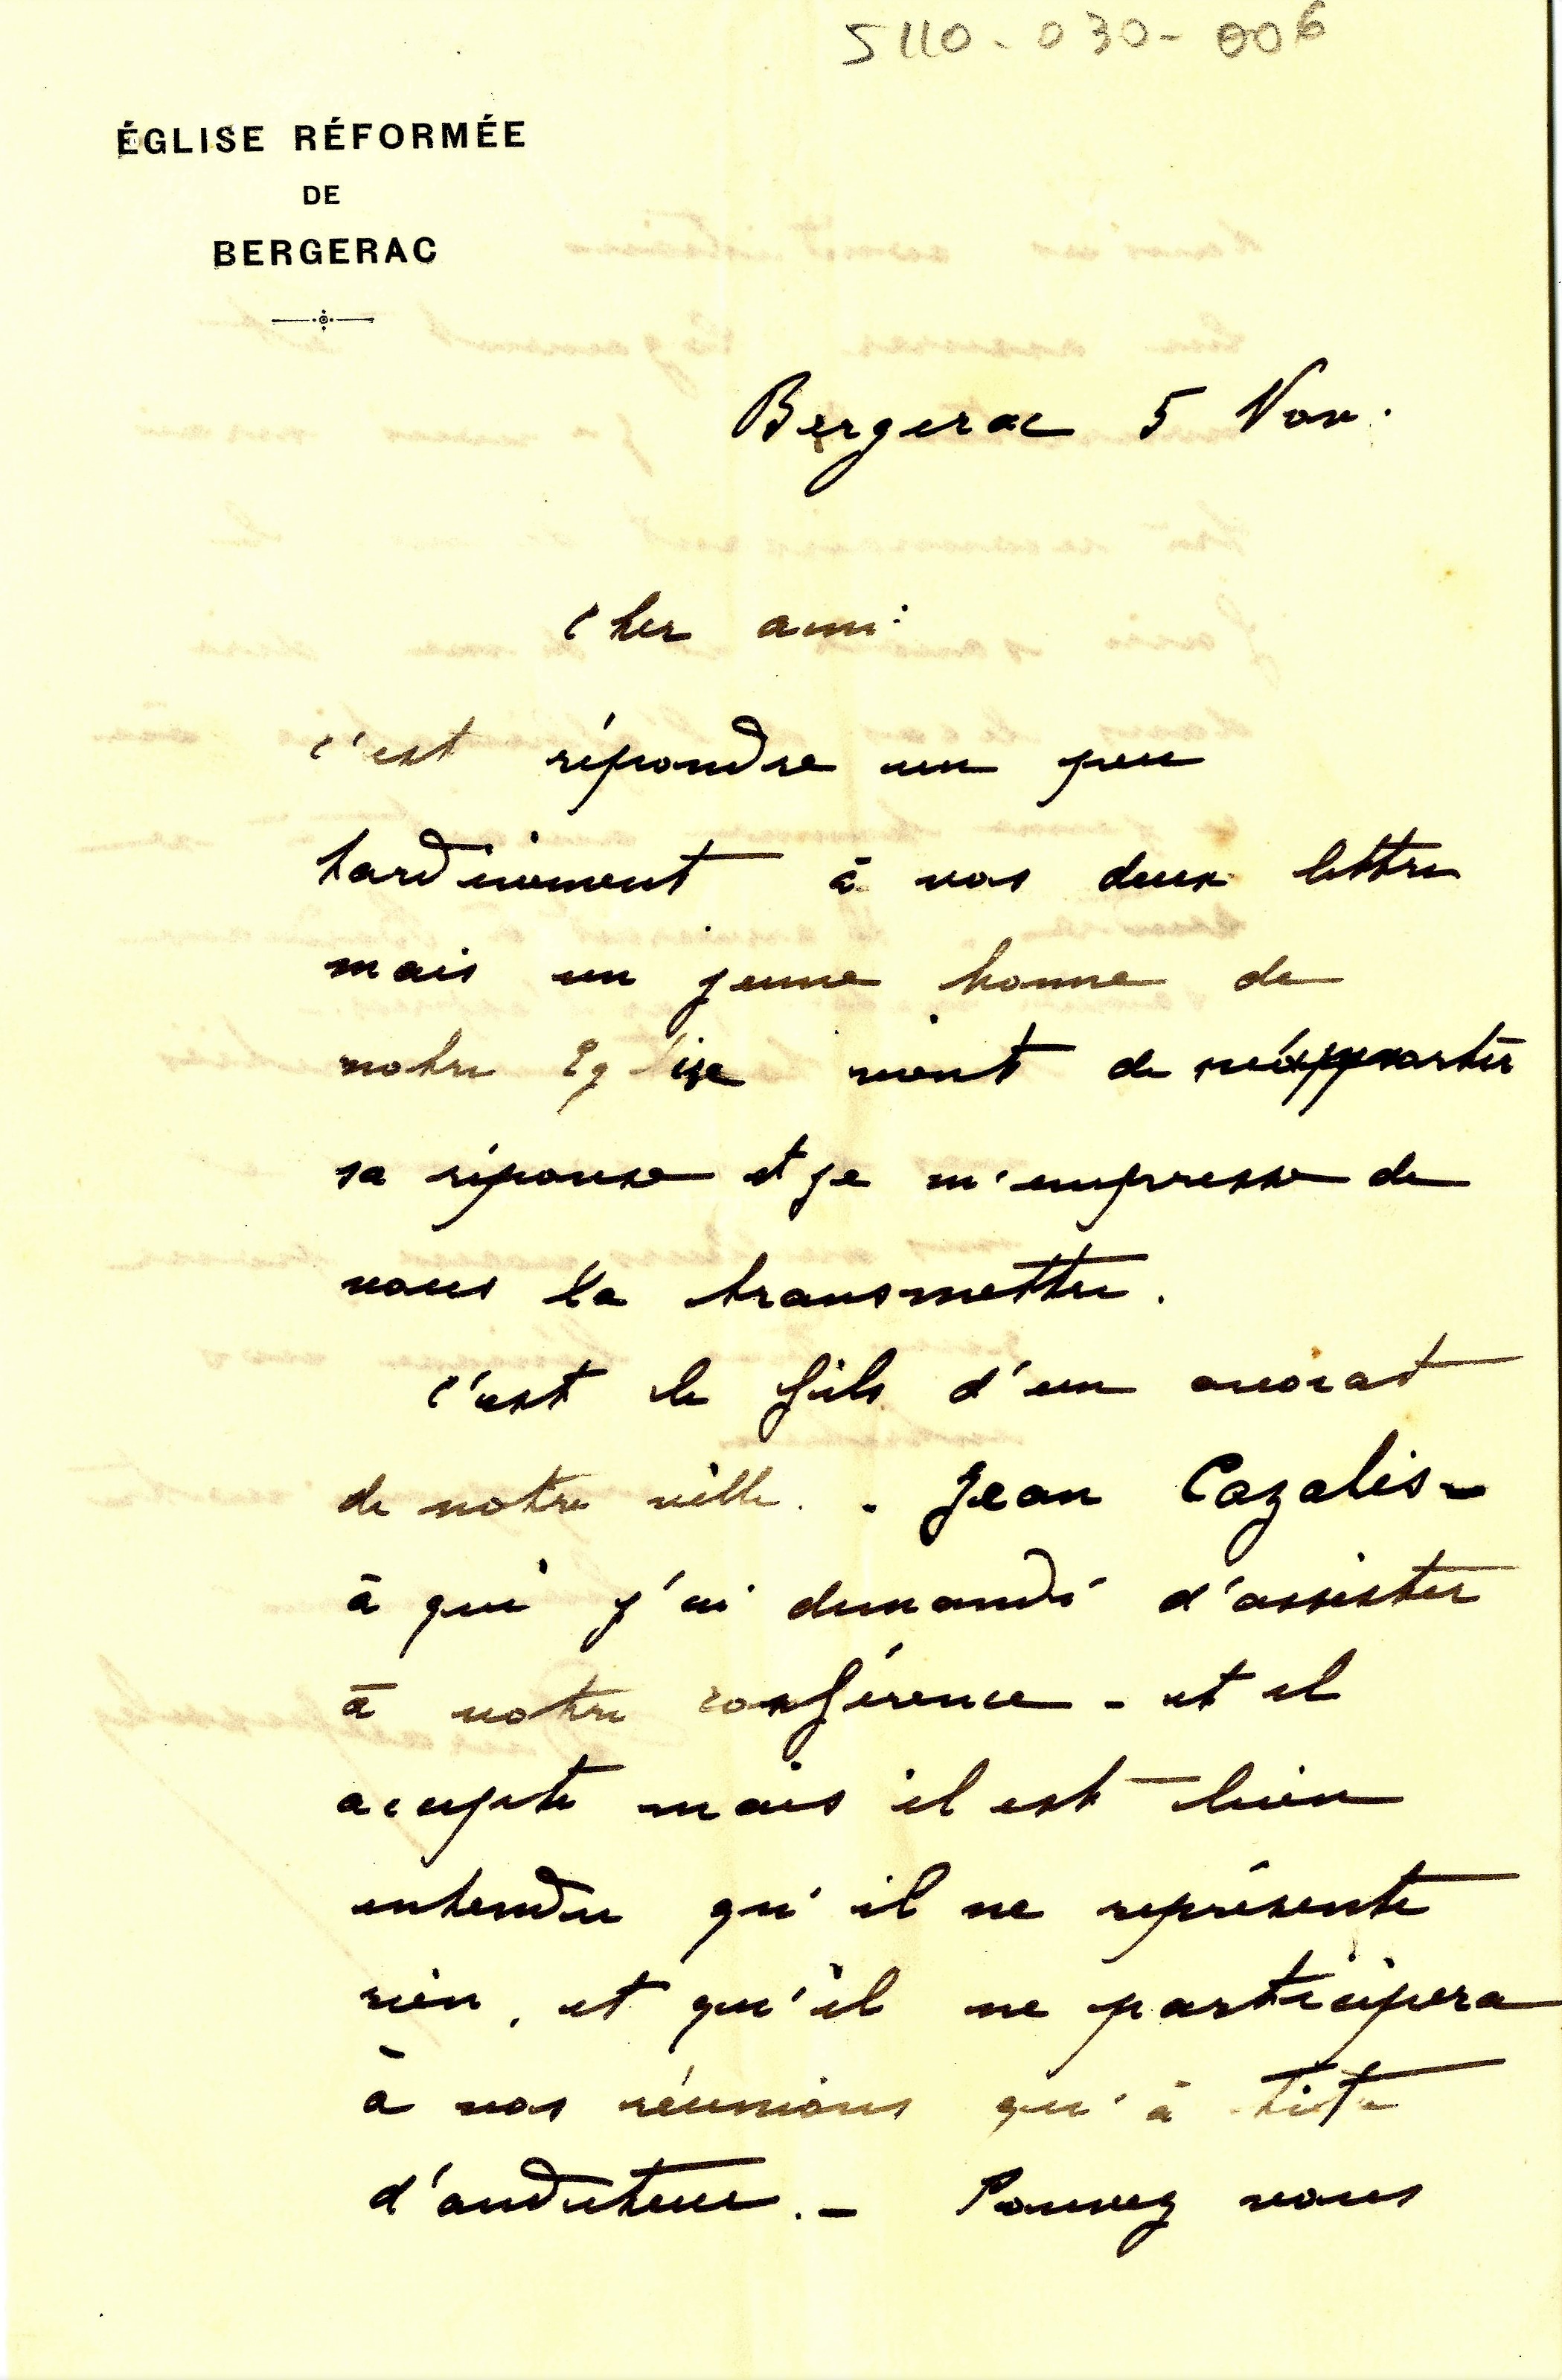 5110-030-006
ÉGLISE RÉFORMÉE
DE
BERGERAC
Bergerac 5 Nov.
Cher ami
c'est répondre un peu
tardivement à vos deux lettres
mais un jeune homme de
notre Eglise vient de m'apporter
sa réponse et je m'empresse de
vous la transmettre.
C'est le fils d'un avocat
de notre ville. - Jean Cazalis -
à qui j'ai demandé d'assister
à notre conférence - et il
accepte mais il est bien
entendu qu'il ne représente
rien, et qu'il ne participera
à nos réunions qu'à titre
d'auditeur. - Pouvez vous